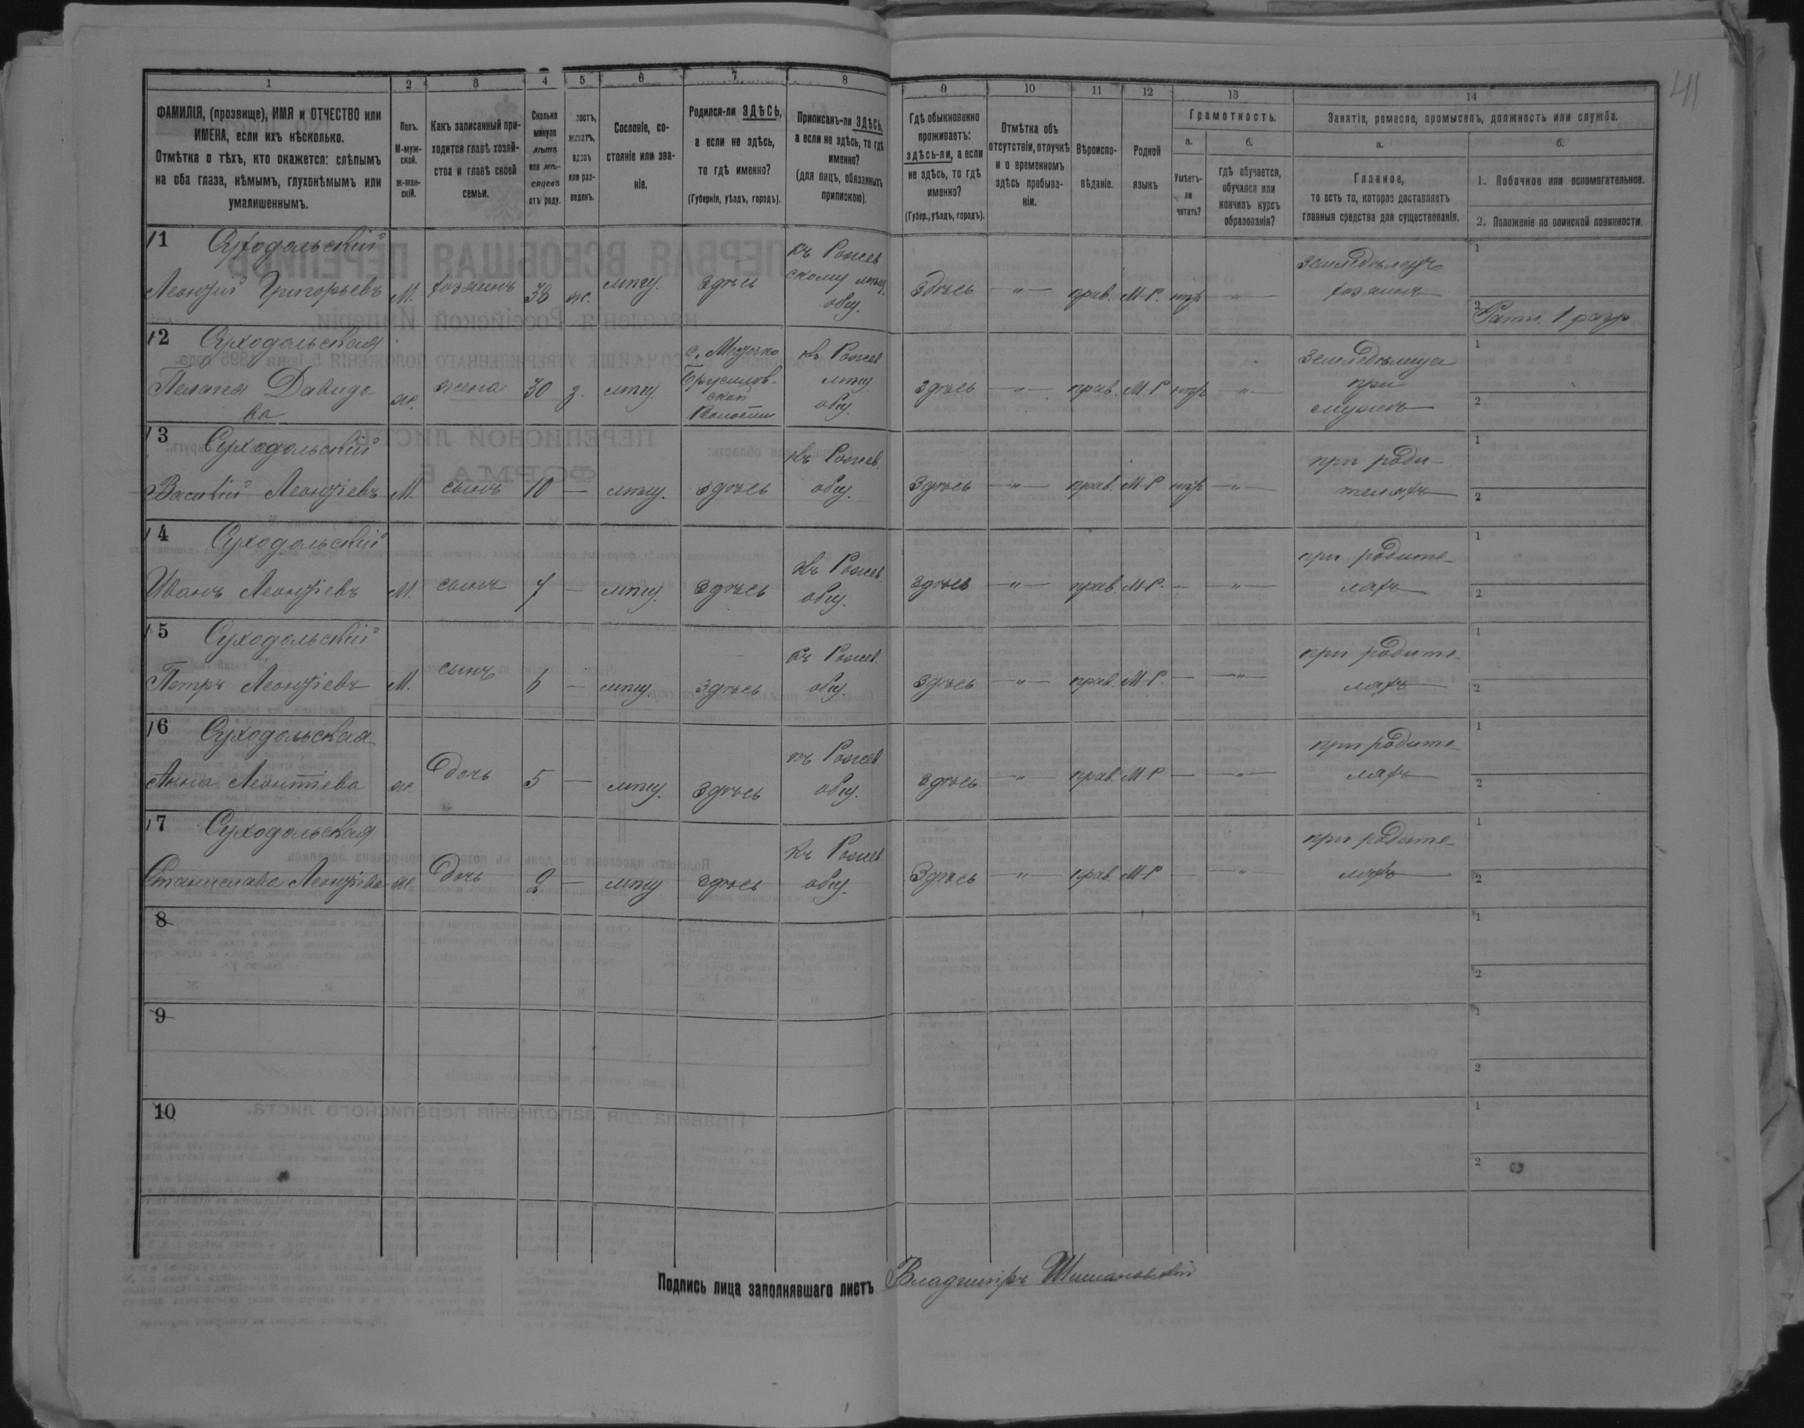 41
1 2 3 4 5 6 7 8 9 10 11 12 13 14
ФАМИЛІЯ, (прозвище), ИМЯ и ОТЧЕСТВО или
ИМЕНА, если ихъ нѣсколько.
Отмѣтка о тѣхъ, кто окажется: слѣпымъ
на оба глаза, нѣмымъ, глухонѣмымъ или
умалишеннымъ.
Полъ.
М-муж-
ской.
ж-жен-
скій.
Какъ записанный при-
ходится главѣ хозяй-
ства и главѣ своей
семьи.
Сколько
минуло
лѣтъ
или мѣ-
сяцевъ
отъ роду.
лостъ,
женатъ,
вдовъ
или раз-
веденъ.
Сословіе, со-
стояніе или зва-
ніе.
Родился-ли ЗДѢСЬ,
а если не здѣсь,
то гдѣ именно?
(Губернія, уѣздъ, городъ).
Приписанъ-ли ЗДѢСЬ,
а если не здѣсь, то гдѣ
именно?
(для лицъ, обязанныхъ
припискою).
Гдѣ обыкновенно
проживаетъ:
здѣсь-ли, а если
не здѣсь, то гдѣ
именно?
(Губер., уѣздъ, городъ).
Отмѣтка объ
отсутствіи, отлучкѣ
и о временномъ
здѣсь пребыва-
ніи.
Вѣроиспо-
вѣданіе.
Родной
языкъ
Грамотность.
а.
Умѣетъ-
ли
читать?
б.
гдѣ обучается,
обучался или
кончилъ курсъ
образованія?
Занятіе, ремесло, промыселъ, должность или служба.
а.
Главное,
то есть то, которое доставляетъ
главныя средства для существованія.
б.
1. Побочное или вспомогательное.
2. Положеніе по воинской повинности.
1 Суходольскій
Леонтій Григорьевъ М. хозяинъ 38 ж. мѣщ. здѣсь къ Рожев
скому мѣщ.
общ. здѣсь " прав. М-Р. нѣтъ " земледѣлецъ
хозяинъ
1
2 Ратн. 1 разр
2 Суходольская
Пелагея Давидо
ва ж. жена 30 з. мѣщ. с.
Брусилов-
ской
Волости къ Рожев
мѣщ.
общ. здѣсь " прав. М-Р нѣтъ " земледѣлица
при
мужѣ
1
2
3 Суходольскій
Василій Леонтіевъ М. сынъ 10 — мѣщ. здѣсь къ Рожев.
общ. здѣсь " прав. М-Р нѣтъ " при роди-
теляхъ
1
2
4 Суходольскій
Иванъ Леонтіевъ М. сынъ 7 — мѣщ. здѣсь къ Рожев
общ. здѣсь " прав. М-Р. — " при родите-
ляхъ
1
2
5 Суходольскій
Петръ Леонтіевъ М. сынъ 6 — мѣщ. здѣсь къ Рожев.
общ. здѣсь " прав. М-Р. — " при родите-
ляхъ
1
2
6 Суходольская
Анна Леонтіева ж. дочь 5 — мѣщ. здѣсь къ Рожев
общ. здѣсь " прав. М-Р — " при родите-
ляхъ
1
2
7 Суходольская
Станислава Леонтіева ж. дочь 2 — мѣщ здѣсь къ Рожев
общ. здѣсь " прав. М-Р — " при родите-
ляхъ
1
2
8
1
2
9
1
2
10
1
2
Подпись лица заполнявшаго листъ Владиміръ Шимановскій